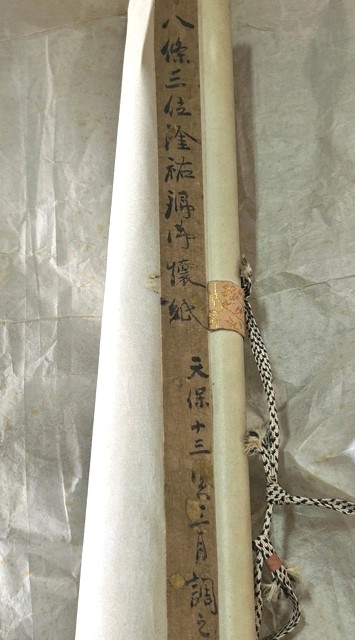 八條三位隆祐卿御懷紙
天保十三寅三月調之